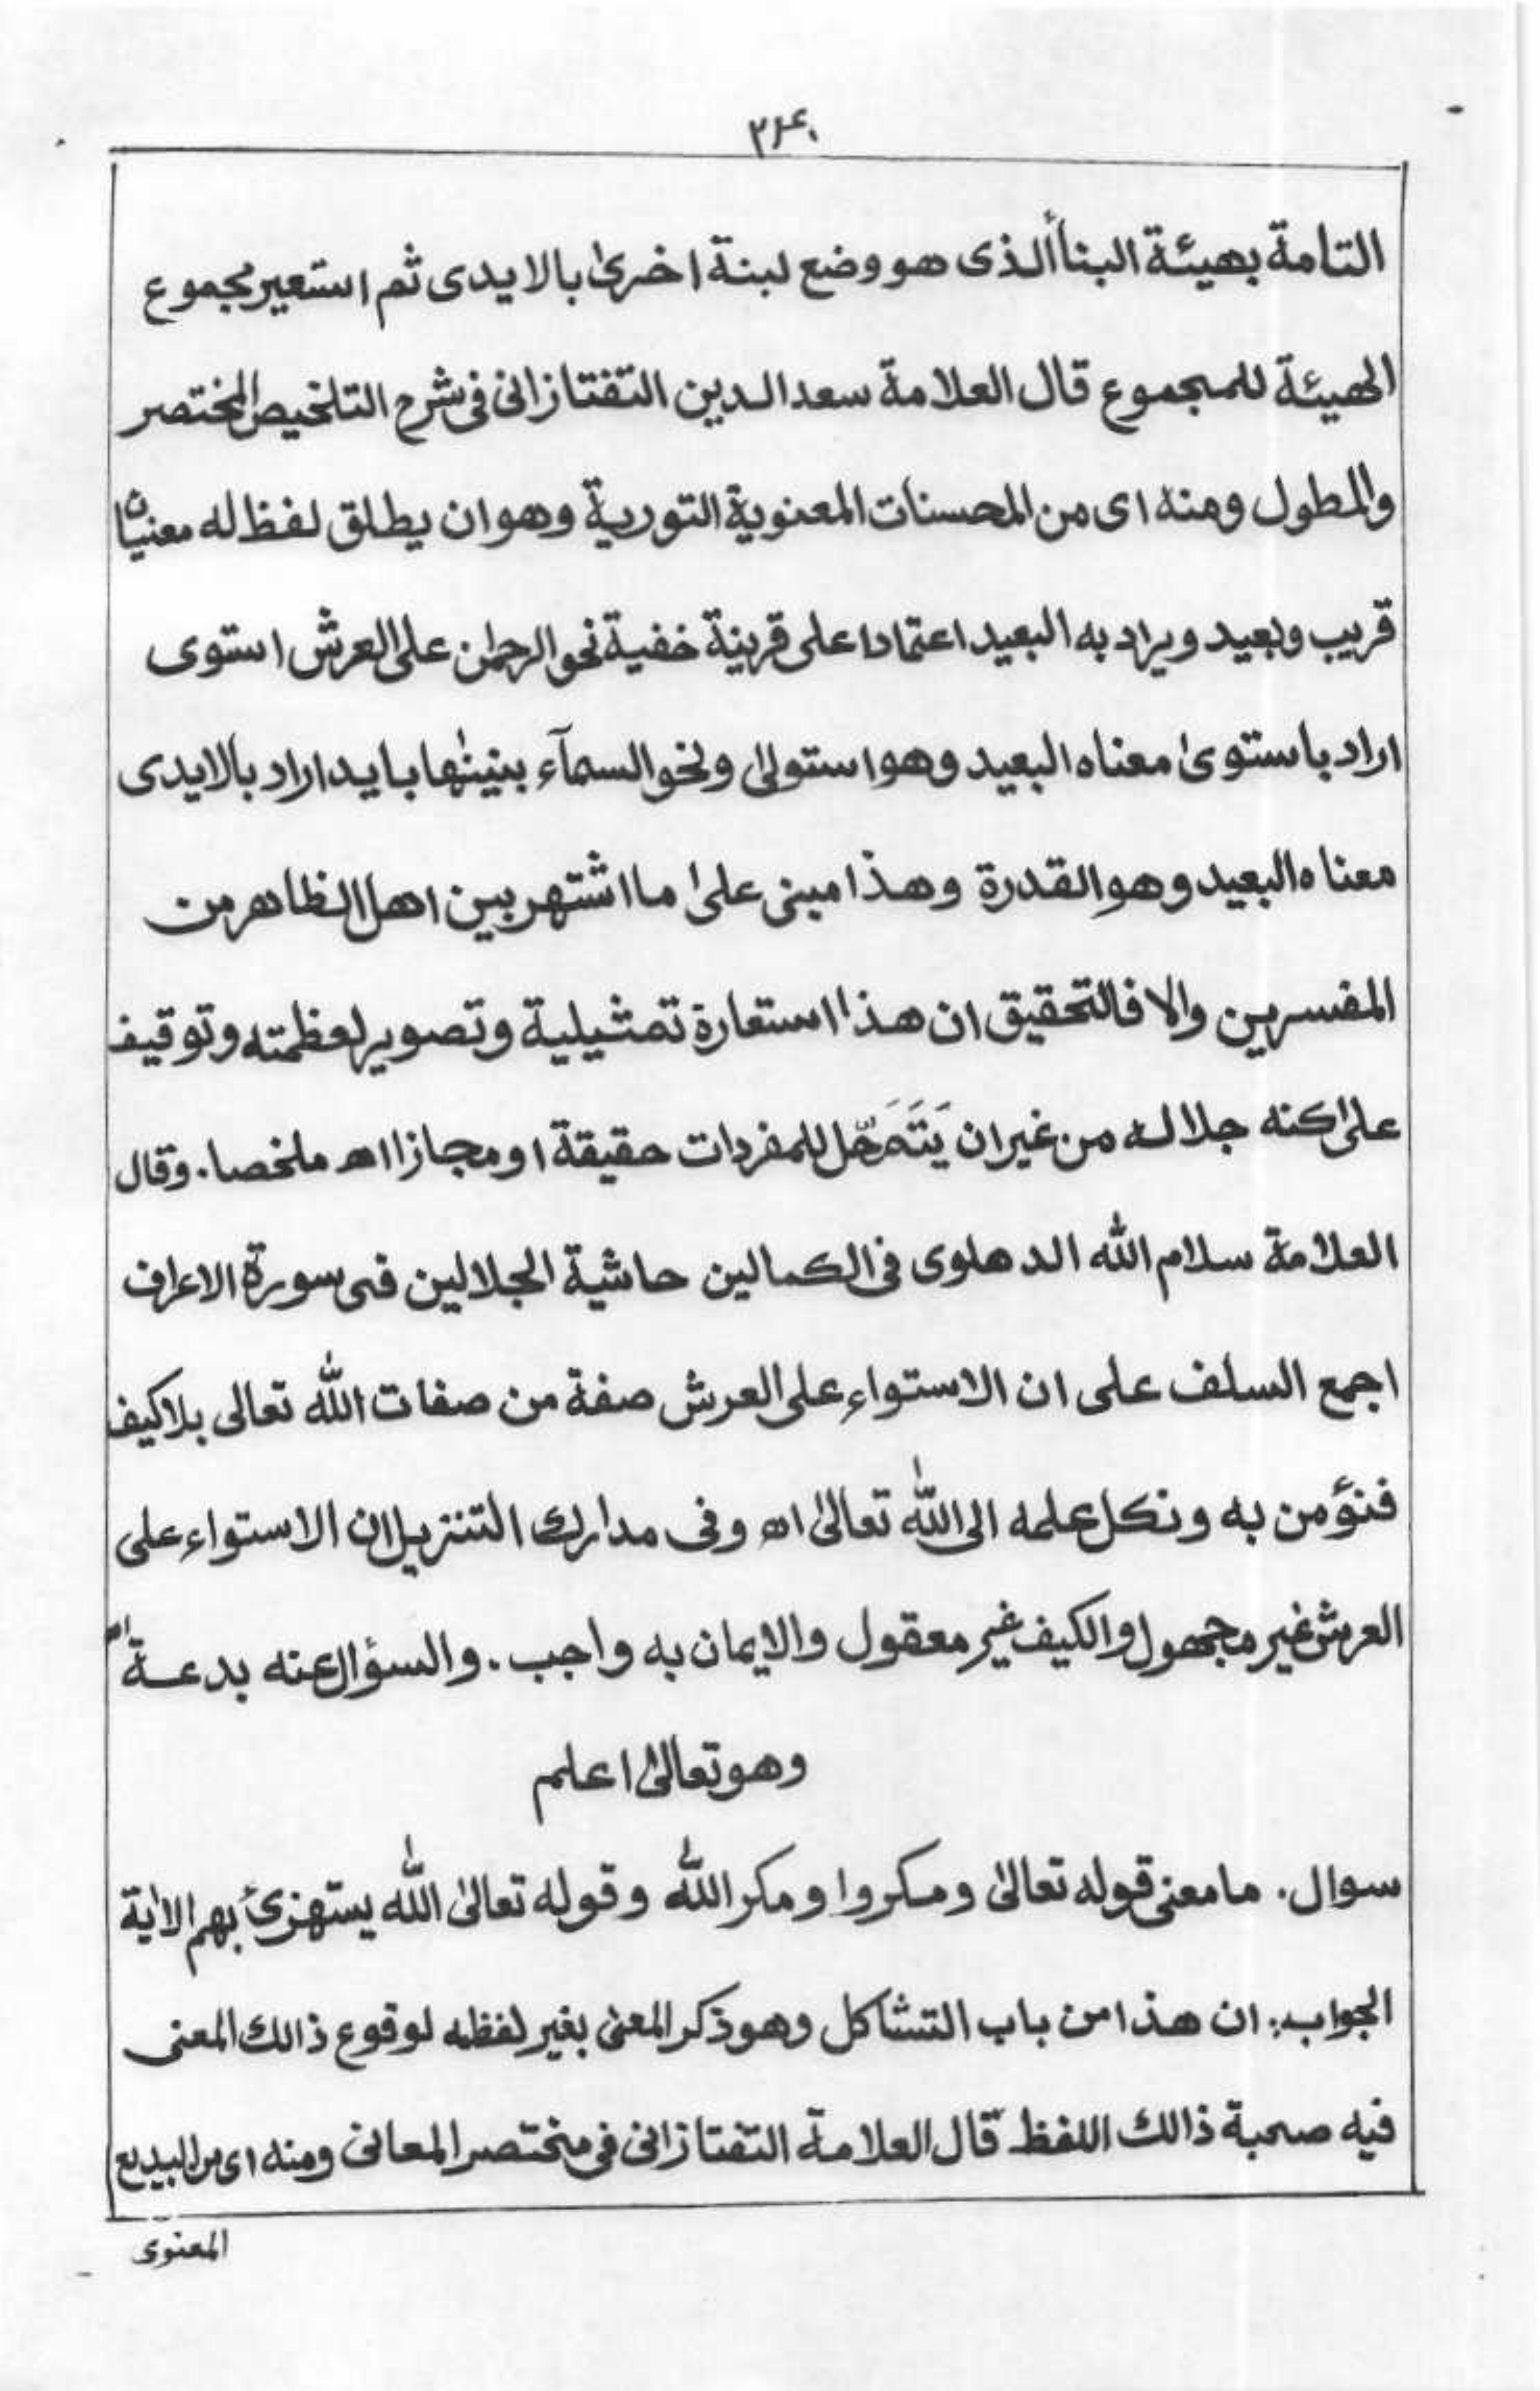 ٣٤٠
التامة بهيئة البنأ الذى هو وضع لبنة اخرىٰ بالايدى ثم استعير مجموع
الهيئة للمجموع قال العلامة سعد الدين التفتازانى فى شرح التلخيص المختصر
والمطول ومنه اى من المحسنات المعنوية التورية وهو ان يطلق لفظ له معنيان
قريب وبعيد ويراد به البعيد اعتمادا على قرينة خفية نحو الرحمٰن على العرش استوى
اراد باستوىٰ معناه البعيد وهو استولىٰ ونحو السمآء بنينٰها بايد اراد بالايدى
معناه البعيد وهو القدرة وهذا مبنى علىٰ ما اشتهر بين اهل الظاهر من
المفسرين والا فالتحقيق ان هذا استعارة تمثيلية وتصوير لعظمته وتوقيف
علىٰ كنه جلاله من غير ان يَتَمَحَّل للمفردات حقيقة او مجازا اھ ملخصا. وقال
العلامة سلام الله الدهلوى فى الكمالين حاشية الجلالين فى سورة الاعراف
اجمع السلف على ان الاستواء على العرش صفة من صفات الله تعالى بلا كيف
فنؤمن به ونكل علمه الى الله تعالىٰ اھ وفى مدارك التنزيل ان الاستواء على
العرش غير مجهول والكيف غير معقول والايمان به واجب. والسؤال عنه بدعة اھ
وهو تعالىٰ اعلم
سوال. ما معنى قوله تعالىٰ ومكروا ومكر الله وقوله تعالىٰ الله يستهزئ بهم الاٰية
الجواب: ان هذا من باب التشاكل وهو ذكر المعنىٰ بغير لفظه لوقوع ذالك المعنى
فيه صحبة ذالك اللفظ قال العلامة التفتازانى فى مختصر المعانى ومنه اى من البديع
المعنوى